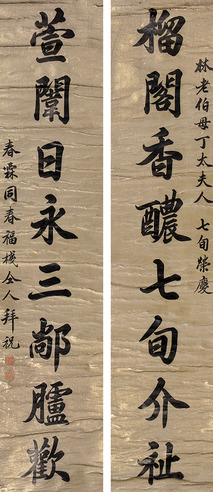 林老伯母丁太夫人 七旬榮慶
榴閣香醲七旬介祉
萱闈日永三鄰臚歡
春霖同春福棧仝人拜祝